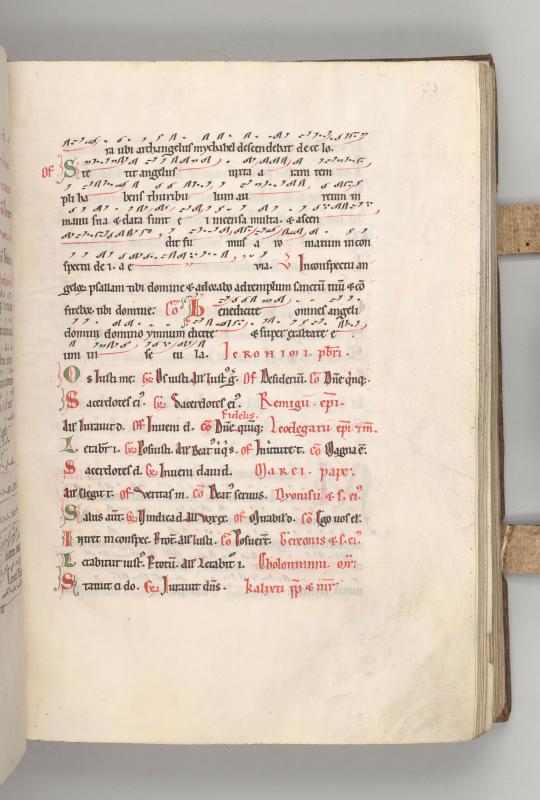 73
ra ubi archangelus mychahel descendebat de celo.
Of Ste tit angelus iuxta a ram tem
pli ha bens thuribu lum au reum in
manu sua & data sunt e i incensa multa. & ascen
dit fu mus a ro matum in con
spectu de i. a e via. V Inconspectu an
gelor psallam tibi domine & adorabo ad templum sanctum tuum & co
fitebor tibi domine. Co Benedicite omnes angeli
domini domino ymnum dicite & super exaltate e
um in se cu la. IERONIMI. pbri.
Os iusti me: Os iusti. All Iust g. Of Desiderium. Co Dne qnq:
Sacerdotes ei. Sacerdotes ei. Remigii. epi.
Fidelis.
All Iuravit d. Of Inveni d. Co Dne quiq; Leodegarii epi & m.
Letabit i. Posuisti. All Beat Of In virtute t. Co Magna e.
Sacerdotes d. Inveni david. MARCI. pape.
All Elegit t. Of Veritas m. Co Beat servus. Dyonisii & s. ei
Salus aut. Vindica d. All Of Mirabil d. Co Ego vos el.
Intret in conspec. All Iusti. Co Posuert. Gereonis & s. ei
Letabitur iust. All Letabit i. Cholomanni. mr.
Statuit ei do. Iuravit dns. kalixti pp & mr.